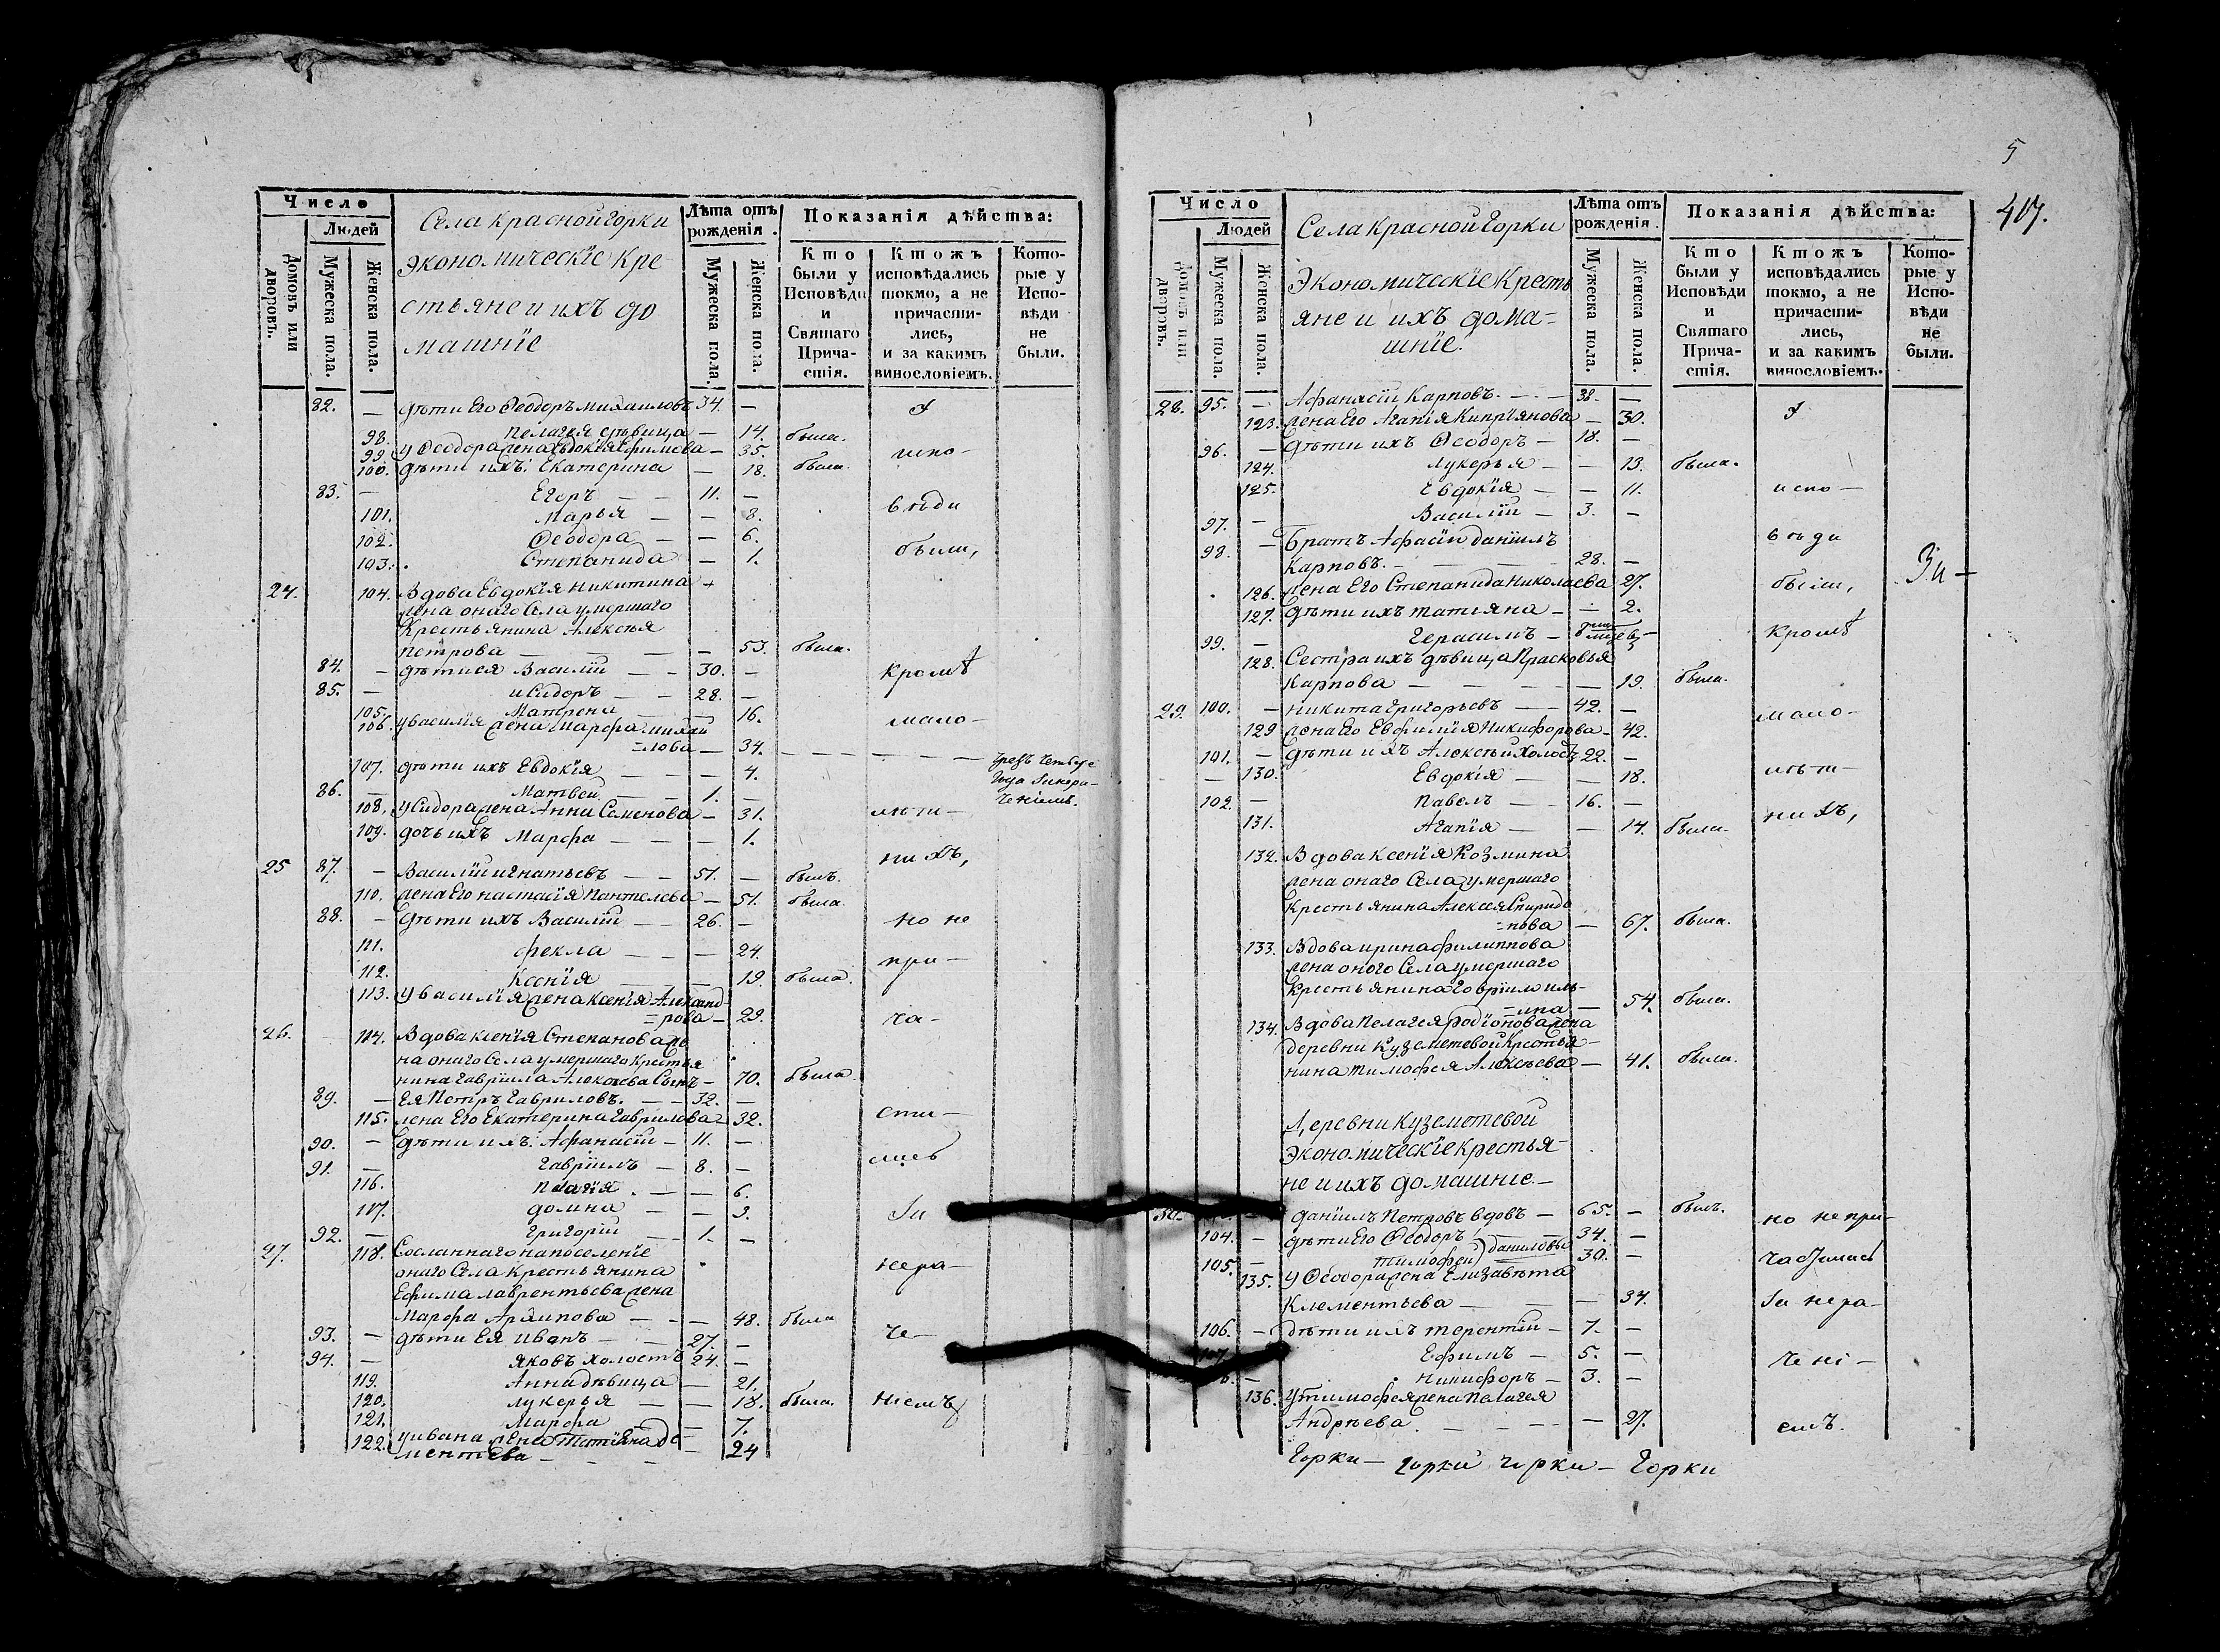 Число
Людей
Домовъ или дворовъ.
Мужеска пола.
Женска пола.
Села Красной горки
Экономическіе Кре
стьяне и ихъ до
машніе
Лѣта отъ рожденія.
Мужеска пола.
Женска пола.
Показанія дѣйства:
Кто были у Исповѣди и Святаго Причастія.
Ктожъ исповѣдались токмо, а не причастились, и за какимъ винословіемъ.
Которые у Исповѣди не были.
82. — дѣти Его Ѳеодоръ михаиловъ 34. — я
98. Пелагея дѣвица — 14. была.
99 у Ѳеодора жена Евдокія Ефимова — 35. испо-
100. дѣти ихъ: Екатерина — 18. была.
83. — Егоръ — — 11. —
101. Марья — — 8. вѣди
102. Ѳеодора — — 6.
103. Степанида — 1. были,
24. 104. Вдова Евдокія Никитина —
жена онаго Села умершаго
Крестьянина Алексѣя
Петрова — — — 53. была.
84. — дѣти ея Василій — — 30. — кромѣ
85. — и Сидоръ — — 28. —
105. Матрена — — 16.
106. у василія жена Марфа михаи мало-
=лова — 34. — — — — — чрезъ четыре
107. дѣти ихъ Евдокія — — — 4. года
86. — Матвей — — 1. — ченіемъ.
108. у Сидора жена Анна Семенова — 31. лѣт-
109. дочь ихъ Марфа — — — 1.
нихъ,
25 87. — Василій игнатьевъ — — 51. — былъ.
110. жена Его настасія Пантелева — 51. была.
88. — дѣти ихъ Василій — — 26. — но не
111. фекла — — — 24.
112. Ксенія — — 19 была. при-
113. у василія жена Ксенія Александ-
=рова — 29. ча-
26. 114. Вдова Ксенія Степанова же
на онаго Села умершаго Крестья
нина гавріила Алексѣева Сынъ — 70. была.
89. — Ея Петръ гавриловъ. — — 32. —
115. жена Его Екатерина гаврилова — 32. сти-
90. — дѣти ихъ: Афанасій — 11. —
91. — гавріилъ — 8. — лись
116. Пелагія. — — 6.
117. домна — — 3. за
92. — григорій — — 1. —
27. 118. Сосланнаго на поселеніе
онаго Села Крестьянина нера-
Ефима лаврентьева жена
Марфа Архипова — — — 48. была
93. — дѣти Ея Иванъ — — 27. — че-
94. — яковъ холостъ 24. —
119. Анна дѣвица — 21.
120. лукерья — — 18. была. ніемъ
121. Марфа — — 7.
122. у ивана жена Татіяна де-
ментева — — — 24
5
417.
Число
Людей
Домовъ или дворовъ.
Мужеска пола.
Женска пола.
Села Красной Горки
Экономическіе Кресть
яне и ихъ дома=
шніе.
Лѣта отъ рожденія.
Мужеска пола.
Женска пола.
Показанія дѣйства:
Кто были у Исповѣди и Святаго Причастія.
Ктожъ исповѣдались токмо, а не причастились, и за какимъ винословіемъ.
Которые у Исповѣди не были.
28. 95. — Афанасій Карповъ. — — 38. — я
123. жена Его Агапія Кипріянова — 30.
96. — дѣти ихъ Ѳеодоръ — 18. —
124. лукерья — — 13. была.
125. Евдокія — — 11. испо —
97. — Василій — 3. —
98. — Братъ Афасіи даніилъ вѣди
Карповъ. — — — 28. — Зи-
126. жена Его Степанида Николаева 27. были,
127. дѣти ихъ татіяна — — 2.
99. — герасимъ — — кромѣ
128. Сестра ихъ дѣвица Прасковья
Карпова — — — — 19. была.
29. 100. — никита григорьевъ — — 42. — мало-
129 жена Его Евфимія Никифорова — 42.
101. — дѣти ихъ Алексѣй холостъ 22. —
130. Евдокія — — 18. лѣт-
102. — Павелъ — — 16. —
131. Агапія — — 14. была. нихъ,
132. Вдова Ксенія Козмина
жена онаго Села умершаго
Крестьянина Алексея Спиридо
=нова — 67. была.
133. Вдова ирина филиппова
жена оного Села умершаго
Крестьянина гавріила иль-
=ина — 54. была.
134. Вдова Пелагея родіонова жена
деревни Куземетевой Крестья-
нина тимофея Алексѣева — 41. была.
Деревни Куземетевой
Экономическіе крестья-
не и ихъ домашніе. —
30. — даніилъ Петровъ вдовъ — 65. — былъ. но непри-
104. — дѣти Его Ѳеодоръ 34. —
105. — тимофей) даниловы 30. — частились
135. у Ѳеодора жена Елизавѣта
Клементьева — — — 34. за нера-
106. — дѣти ихъ терентій — 7. —
Ефимъ — 5. — чені-
— никифоръ — 3. —
136. у тимофея жена Пелагея
Андрѣева. — — — 27. емъ.
Горки — горки горки — Горки